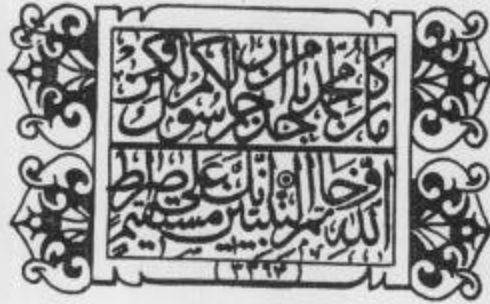 ما كان محمد أبا أحد من رجالكم ولكن رسول
الله وخاتم النبيين إنك على صراط مستقيم